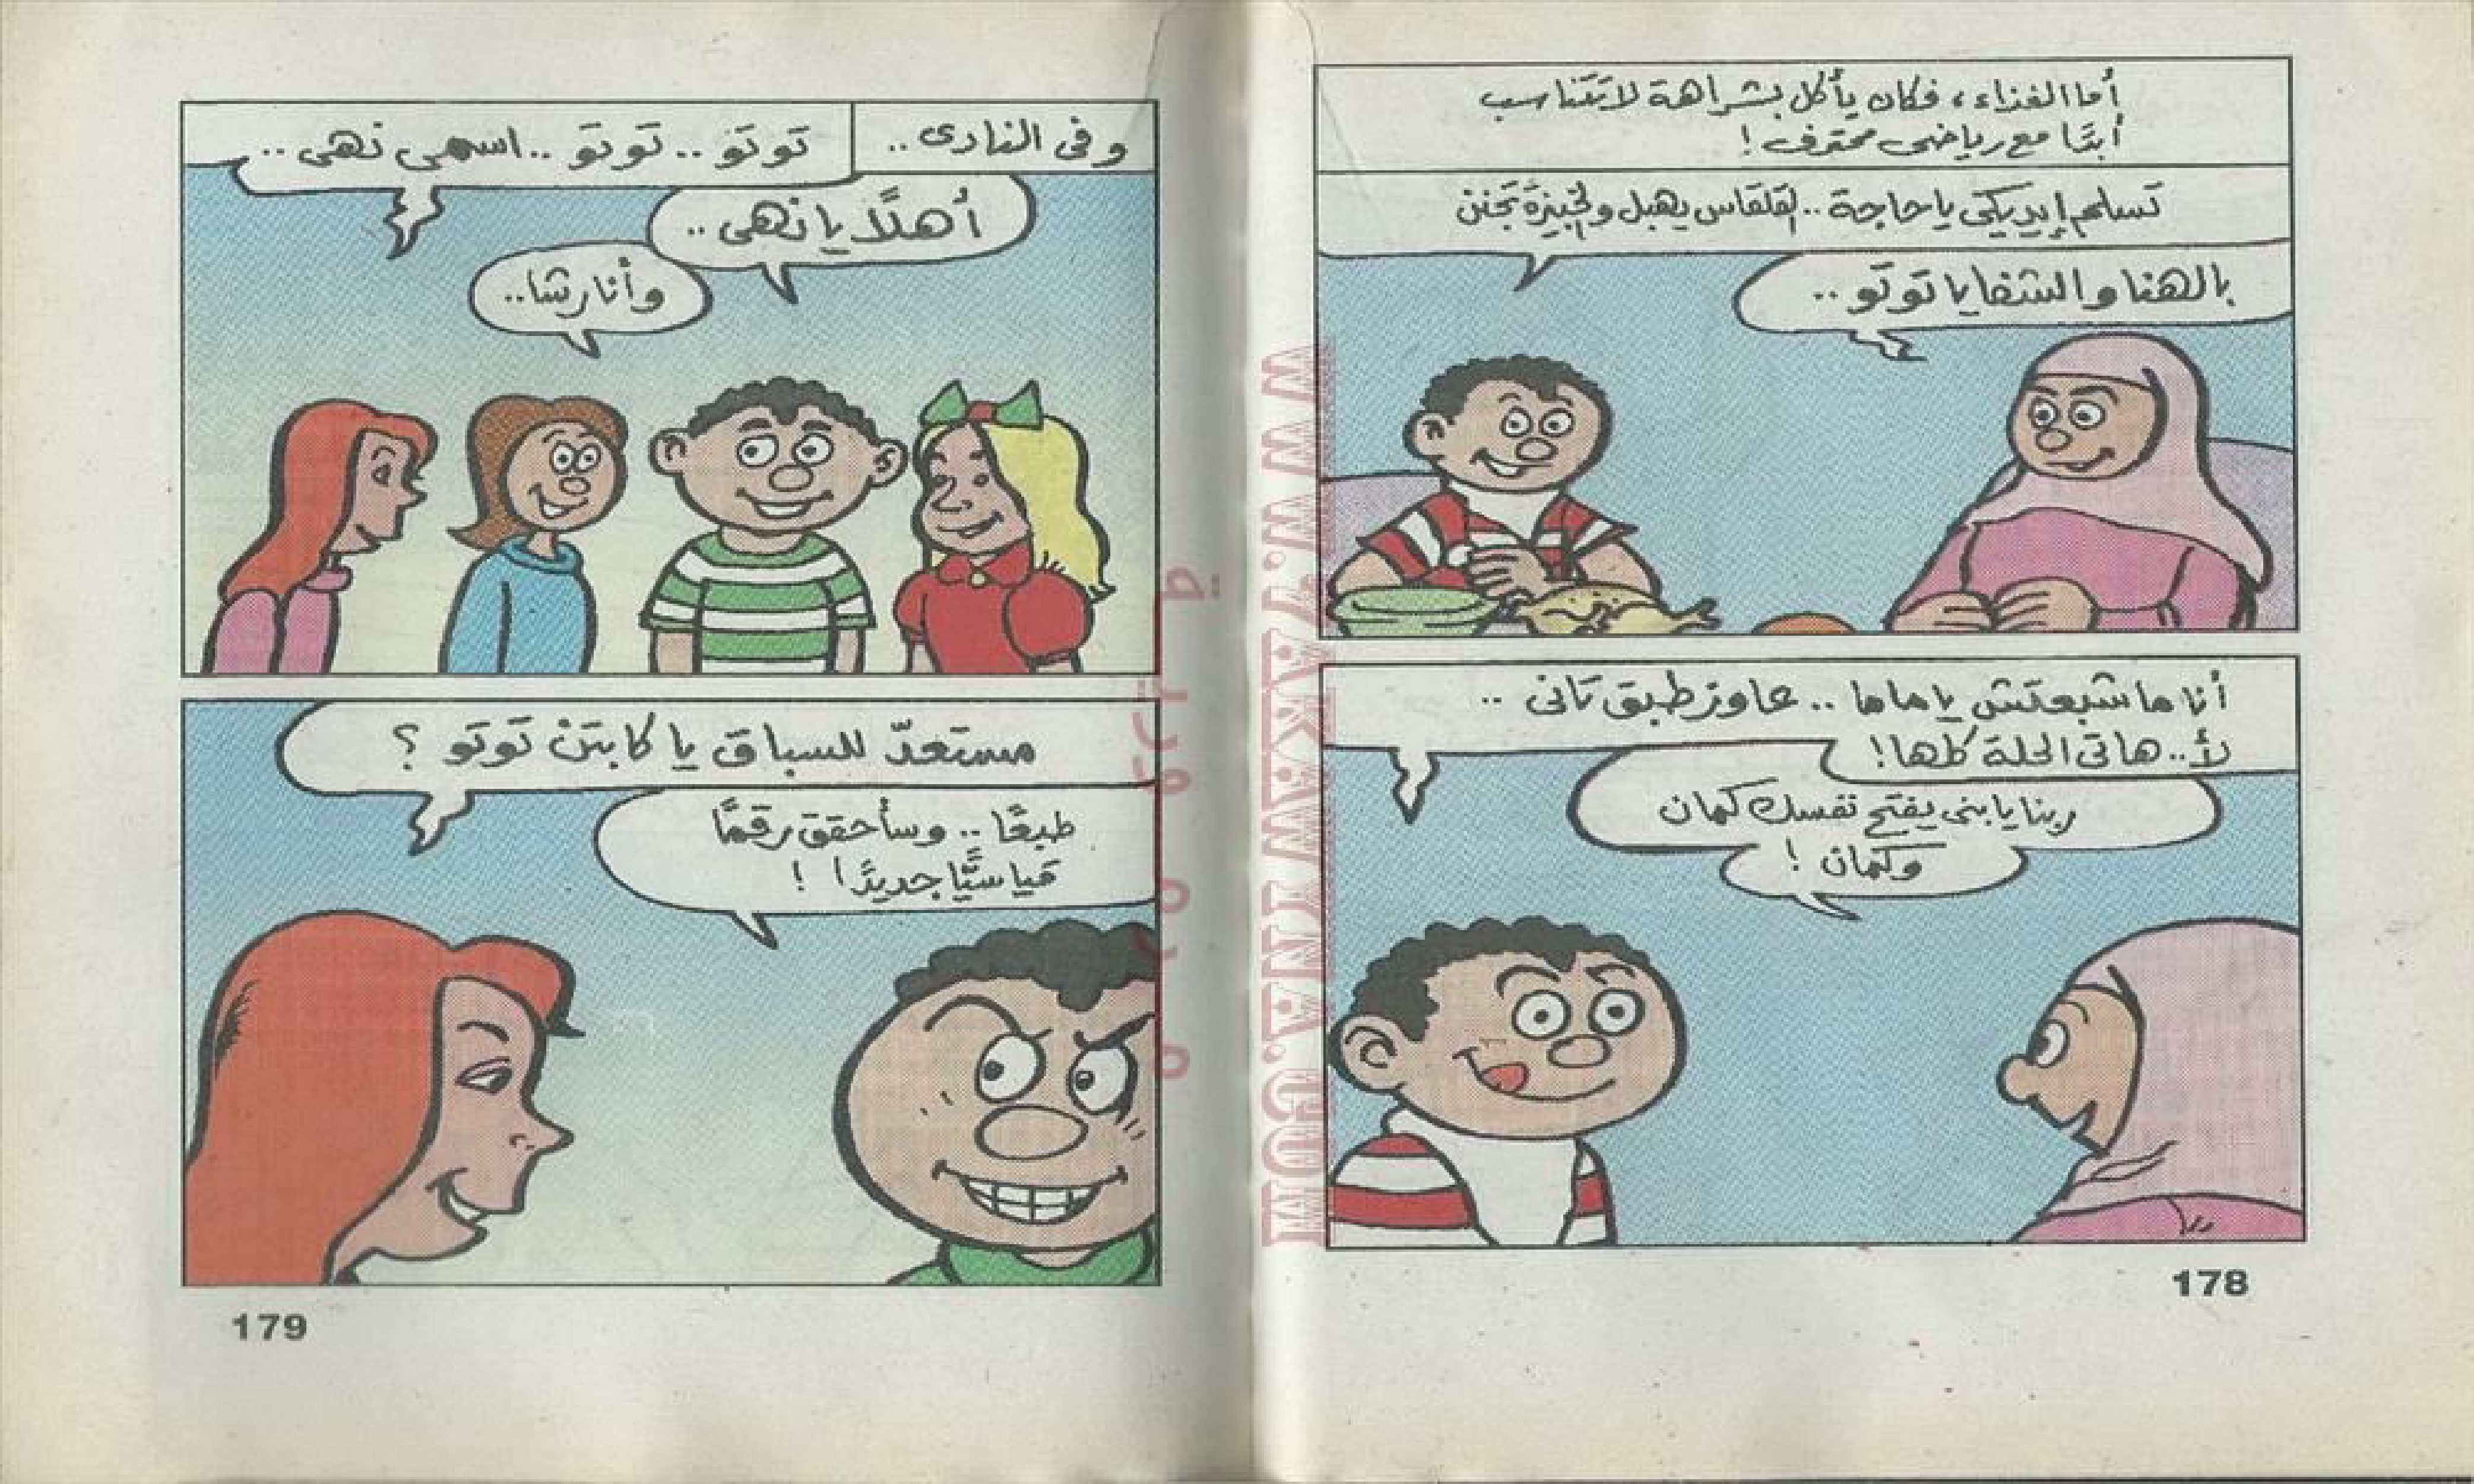 أما الغذاء، فكان يأكل بشراهة لا تتناسب
أبدًا مع رياضى محترف!
تسلم إيديكى يا حاجة.. القلقاس يهبل والخبيزة تجنن
بالهنا والشفا يا توتو..
أنا ما شبعتش يا ماما.. عاوز طبق تانى..
لأ.. هاتى الحلة كلها!
ربنا يا بنى يفتح نفسك كمان
وكمان!
178
وفى النادى..
توتو.. توتو.. اسمى نهى..
أهلًا يا نهى..
وأنا رشا..
مستعدّ للسباق يا كابتن توتو؟
طبعًا.. وسأحقق رقمًا
قياسيًّا جديدًا!
179